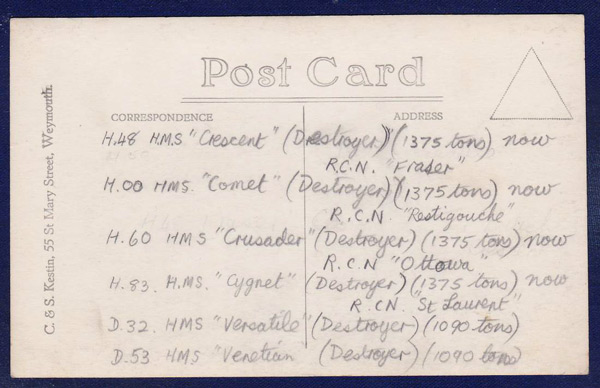 Post Card
C. & S. Kestin, 55 St Mary Street, Weymouth.
CORRESPONDENCE
ADDRESS
H.48 H.M.S "Crescent" (Destroyer) (1375 tons) now
R.C.N. "Fraser"
H.00 HMS. "Comet" (Destroyer) (1375 tons) now
R.C.N. "Restigouche"
H.60 HMS "Crusader" (Destroyer) (1375 tons) now
R.C.N "Ottowa"
H.83. H.MS. "Cygnet" (Destroyer) (1375 tons) now
R.CN. "St Laurent"
D.32. HMS "Versatile" (Destroyer) (1090 tons)
D.53 HMS "Venetian (Destroyer) (1090 tons)